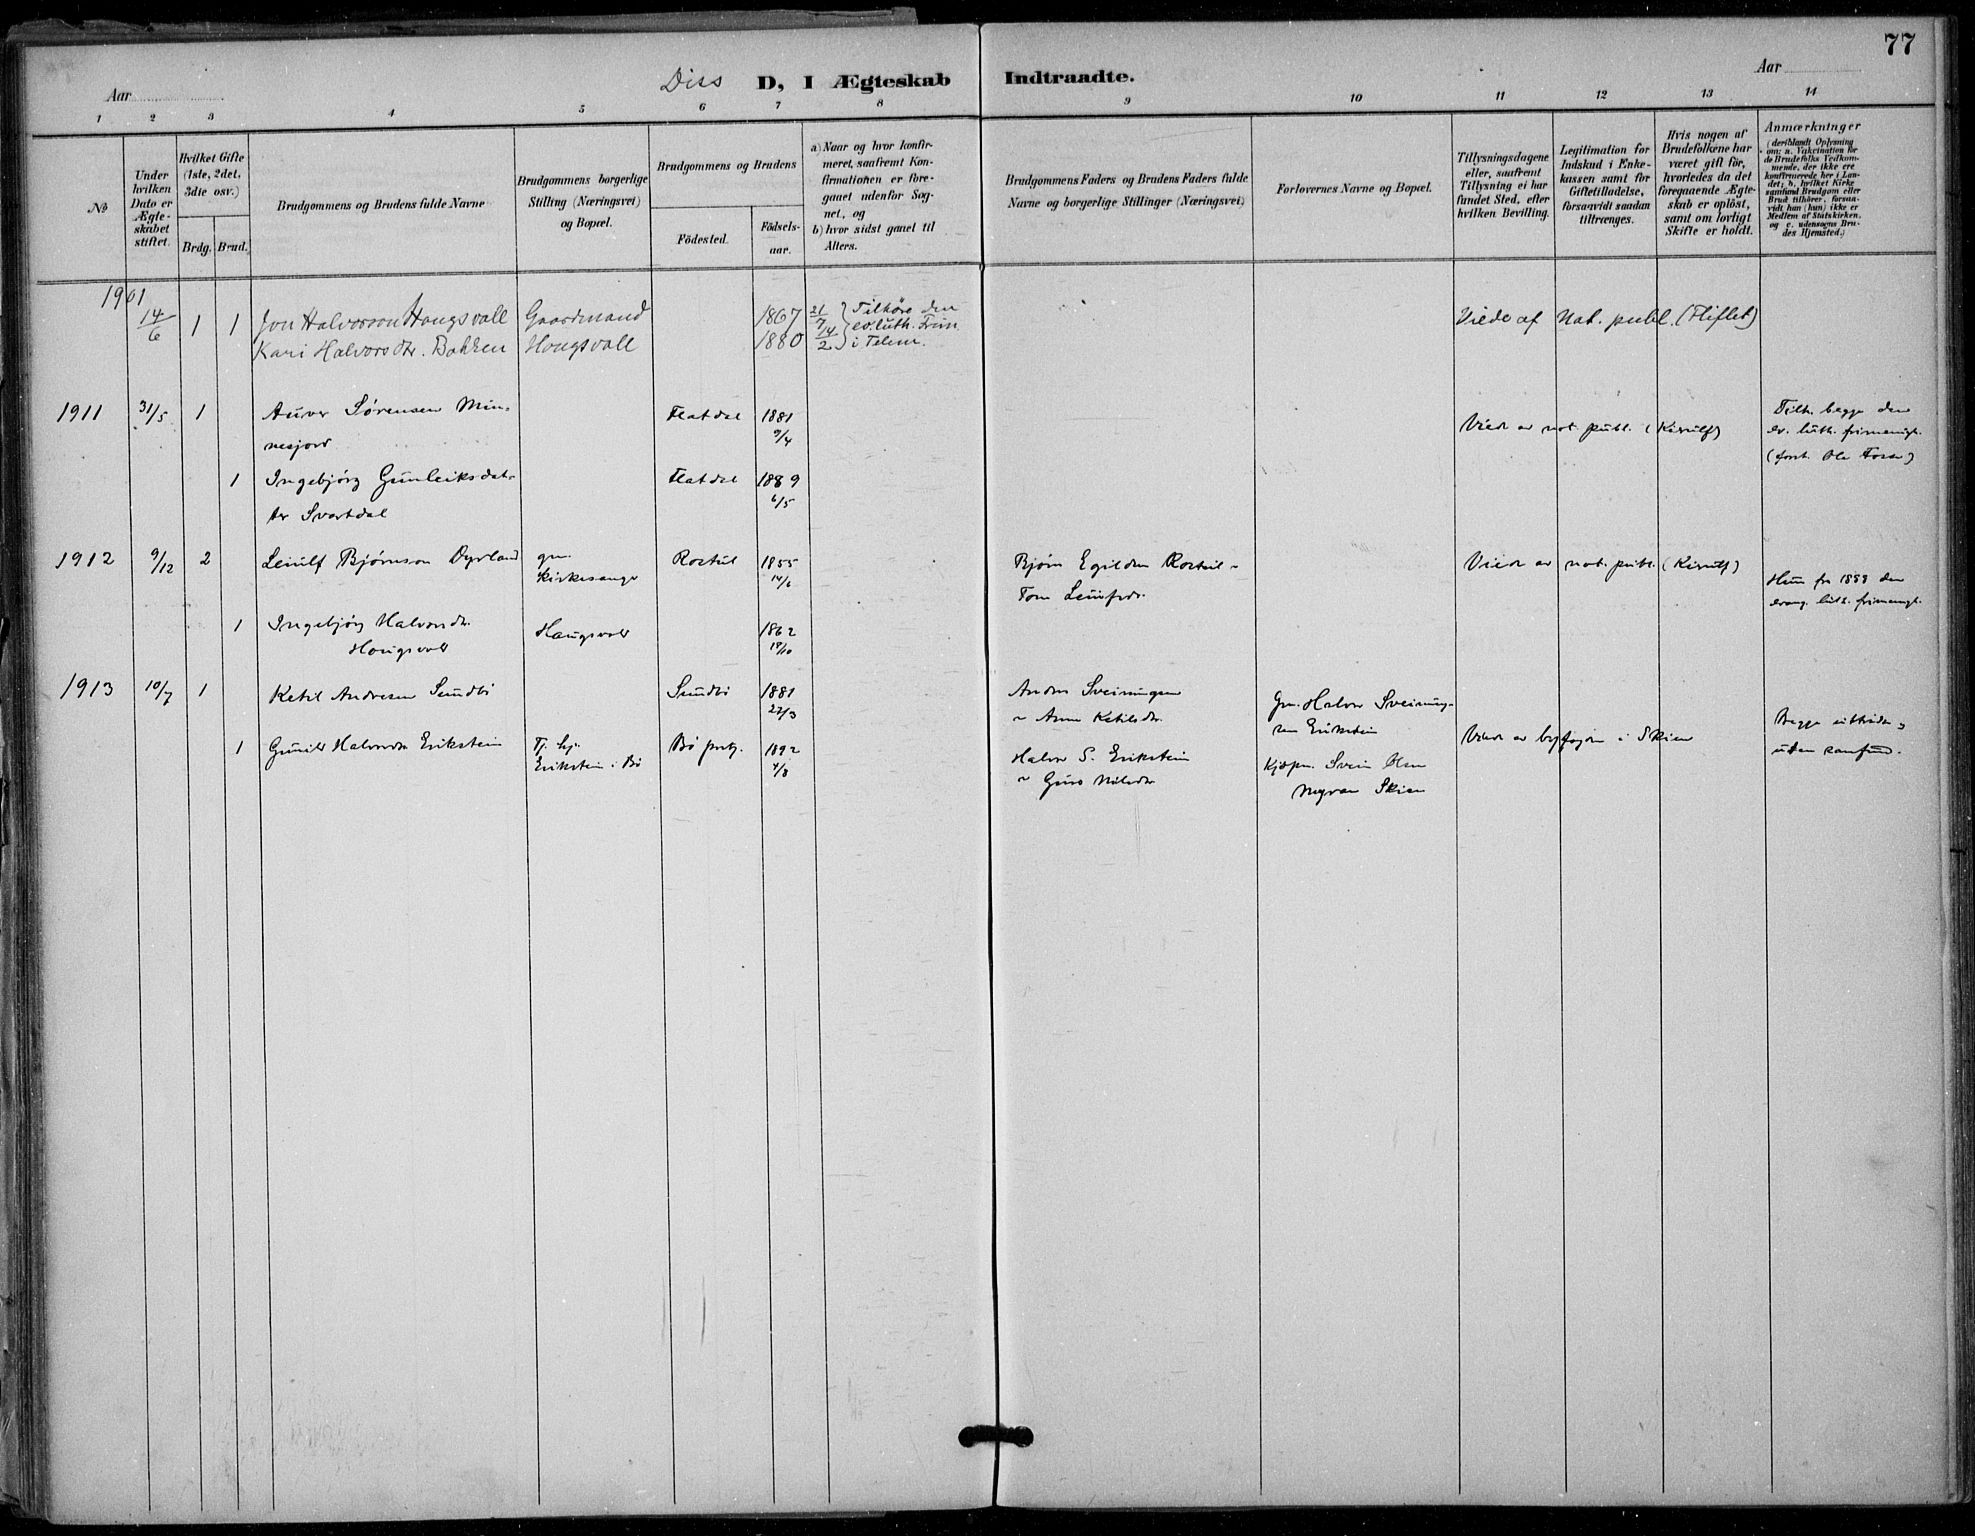 77
Diss D, I Ægteskab Indtraadte.
Aar
Aar
1 2 3 4 5 6 7 8 9 10 11 12 13 14
№
Under
hvilken
Dato er
Ægte-
skabet
stiftet.
Hvilket Gifte
(1ste, 2det,
3die osv.)
Brdg. Brud.
Brudgommens og Brudens fulde Navne
Brudgommens borgerlige
Stilling (Næringsvei)
og Bopæl.
Brudgommens og Brudens
Födested.
Födsels-
aar.
a) Naar og hvor konfir-
meret, saafremt Kon-
firmationen er fore-
gaaet udenfor Sog-
net, og
b) hvor sidst gaaet til
Alters.
Brudgommens Faders og Brudens Faders fulde
Navne og borgerlige Stillinger (Næringsvei)
Forlovernes Navne og Bopæl.
Tillysningsdagene
eller, saafremt
Tillysning ei har
fundet Sted, efter
hvilken Bevilling.
Legitimation for
Indskud i Enke-
kassen samt for
Giftetilladelse,
forsaavidt saadan
tiltrænges.
Hvis nogen af
Brudefolkene har
været gift för,
hvorledes da det
foregaaende Ægte-
skab er oplöst,
samt om lovligt
Skifte er holdt.
Anmærkninger
(deriblandt Oplysning
om: a. Vakcination for
de Brudefolks Vedkom-
mende, der ikke ere
konfirmerede her i Lan-
det; b. hvilket Kirke
samfund Brudgom eller
Brud tilhörer, forsaa-
vidt han (hun) ikke er
Medlem af Statskirken,
og c. udensogns Bru-
des Hjemsted.)
1901
14/6 1 1 Jon Halvorson Haugsvall Gaardmand 1867 21/7 Tilhöre den
Kari Halvorsdtr. Bakken Hougsvall 1880 14/2 ev. luth. Frim.
i Telem.
Viede af Not. publ. (Fliflet)
1911 31/5 1 Auver Sørensen Min-
nesjord
Flatdal 1881
9/4
Viede av not. publ. (Kierulf)
Tilh. begge den
ev. luth. frimenigh.
(forst. Ole Fosse)
1 Ingebjørg Gunleiksdat-
ter Svartdal
Flatdal 1889
6/5
1912 9/12 2 Leiulf Bjørnson Dyrland gm.
Kirkesanger
Rortul 1855
14/6
Bjørn Egilden Rortul
Tone Leiulfsdr.
Viede av not. publ. (Kierulf)
Hun fr 1889 den
evang. luth. frimenigh.
1 Ingebjørg Halvorsdr.
Hougsvoll
Haugsvoll 1862
18/10
1913 10/7 1 Ketil Andresen Sundbi Sundbi 1881
27/3
Anders Sveinungsen
Anne Ketilsdr.
Gm. Halvor Sveinung-
sen Erikstein
Viede av byfogden i Skien
Begge uttrådte,
uten samfund.
1 Gunild Halvorsdr Erikstein Tj. hj.
Erikstein i Bø
Bø prstgj. 1892
4/8
Halvor S. Erikstein
Guro Nilsdr
Kjøpm. Svein Olsen
Skien